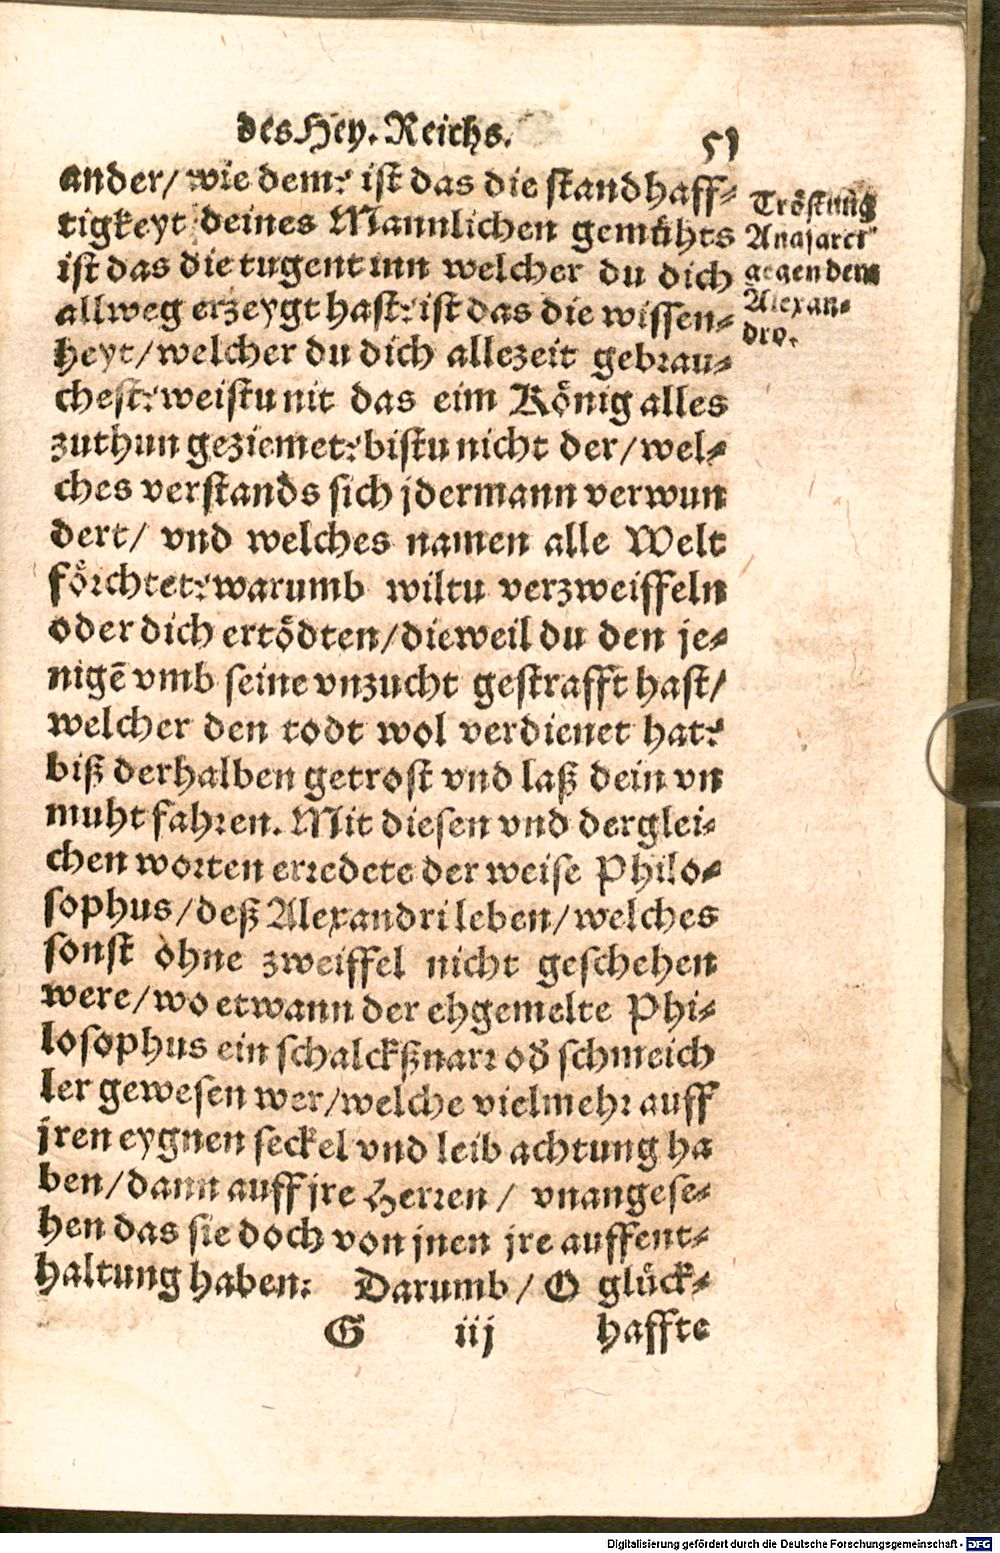 des Hey. Reichs.
51
ander/ wie dem? ist das die standhaff-
tigkeyt deines Mannlichen gemühts
ist das die tugent inn welcher du dich
allweg erzeygt hast? ist das die wissen-
heyt/ welcher du dich allezeit gebrau-
chest? weistu nit das eim König alles
zuthun geziemet? bistu nicht der/ wel-
ches verstands sich jdermann verwun
dert/ vnd welches namen alle Welt
förchtet? warumb wiltu verzweiffeln
oder dich ertödten/ dieweil du den je-
nigẽ vmb seine vnzucht gestrafft hast/
welcher den todt wol verdienet hat?
biß derhalben getrost vnd laß dein vn
muht fahren. Mit diesen vnd derglei-
chen worten erredete der weise Philo-
sophus/ deß Alexandri leben/ welches
sonst ohne zweiffel nicht geschehen
were/ wo etwann der ehgemelte Phi-
losophus ein schalckßnarr od̃ schmeich
ler gewesen wer/ welche vielmehr auff
jren eygnen seckel vnd leib achtung ha
ben/ dann auff jre Herren/ vnangese-
hen das sie doch von jnen jre auffent-
haltung haben: Darumb/ O glück-
G iij haffte
Tröstung
Anaxarci
gegen dem
Alexan-
dro.
Digitalisierung gefördert durch die Deutsche Forschungsgemeinschaft - DFG